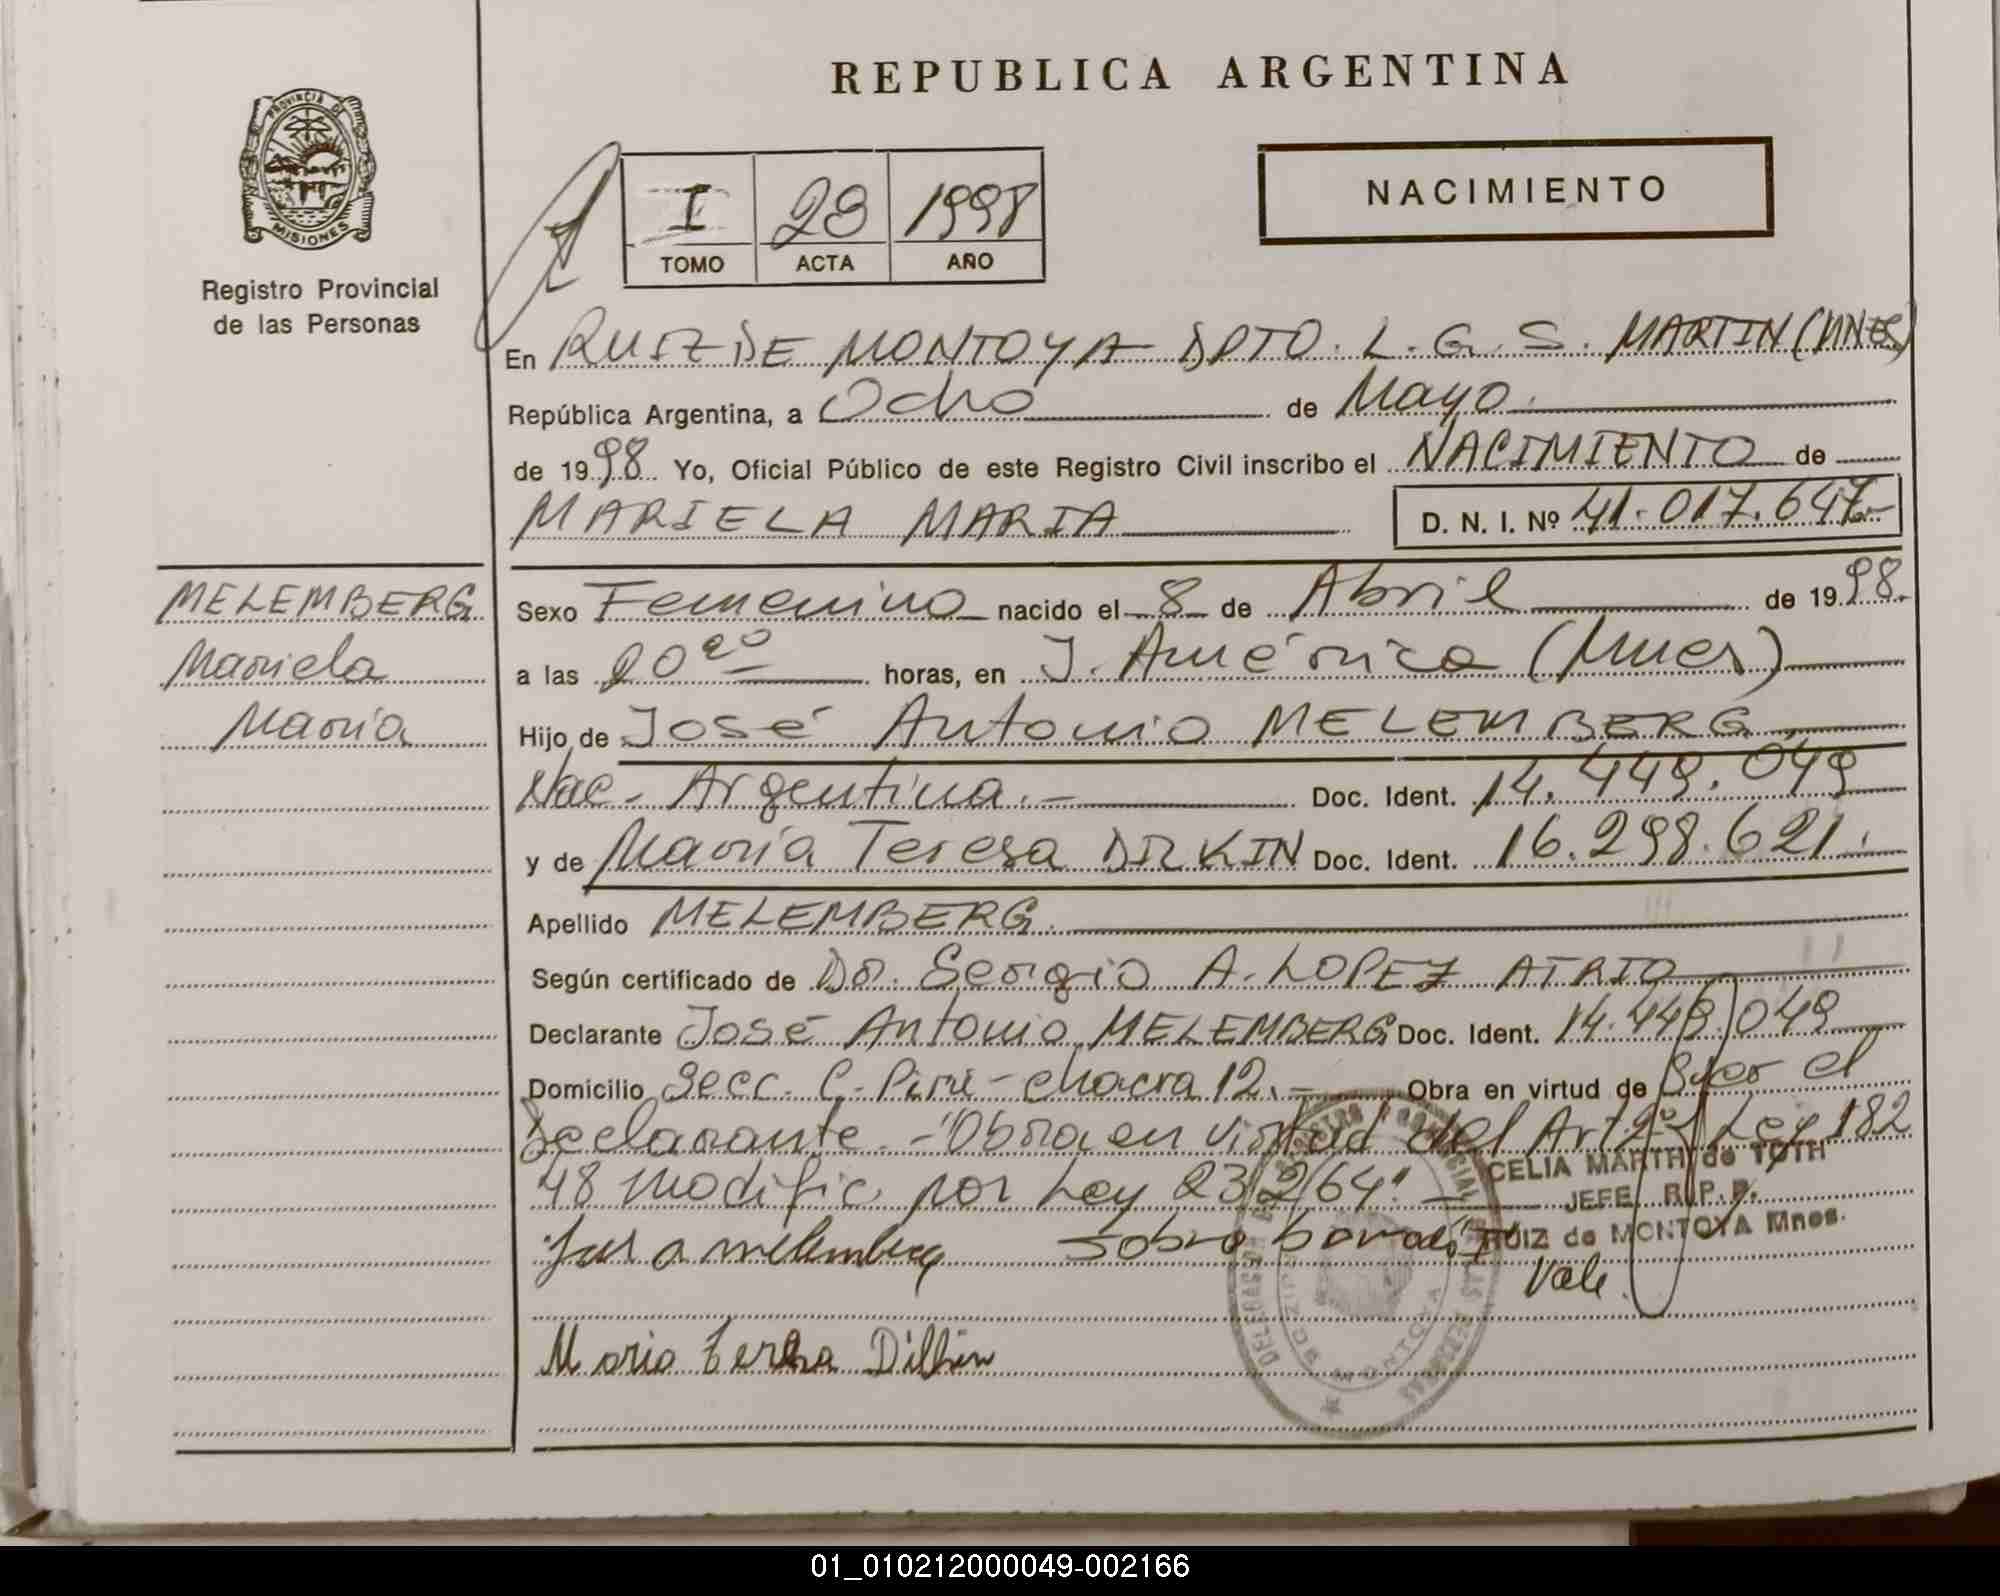 REPUBLICA ARGENTINA
PROVINCIA DE
MISIONES
Registro Provincial
de las Personas
NACIMIENTO
I 1998
TOMO ACTA AÑO
En RUIZ DE MONTOYA DPTO. L. G. S. MARTIN (MNES)
República Argentina, a Ocho de Mayo.
de 1998 Yo, Oficial Público de este Registro Civil inscribo el NACIMIENTO de
MARIELA MARIA D. N. I. Nº 41.017.647.-
MELEMBERG
Mariela
Maria
Sexo Femenino nacido el 8 de Abril de 1998.
a las 20 horas, en J. América (Mnes)
Hijo de José Antonio MELEMBERG
Nac- Argentina.- Doc. Ident. 14.449.049
y de María Teresa Doc. Ident. 16.298.621.
Apellido MELEMBERG.
Según certificado de Dr. Sergio A. LOPEZ ATRIO
Declarante José Antonio MELEMBERG Doc. Ident. 14.449.049
Domicilio Secc. C. Piri- chacra 12.- Obra en virtud de el
Declarante.-"Obra en virtud del Art 2º Ley 182
48 modific. por Ley 23264".-
CELIA MARTH de TOTH
JEFE R. P. P.
RUIZ de MONTOYA Mnes.
Jose a melemberg Sobre borrado "I"
Vale.
Maria Teresa
01_010212000049-002166